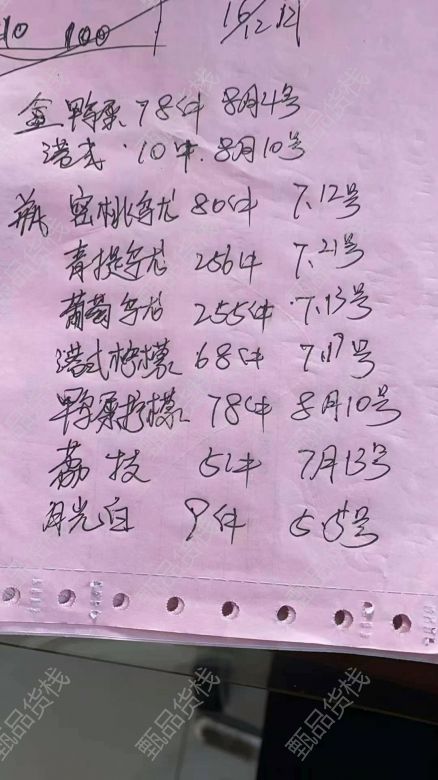 10 100
16/12 12
盒 鸭柔 78件 8月4号
港式 10件. 8月10号
瓶 蜜桃乌龙 80件 7.12号
青提乌龙 256件 7.21号
葡萄乌龙 255件 7.13号
港式柠檬 68件 7.17号
鸭柔柠檬 78件 8月10号
荔技 5件 7月13号
月光白 9件 5.5号
甄品货栈